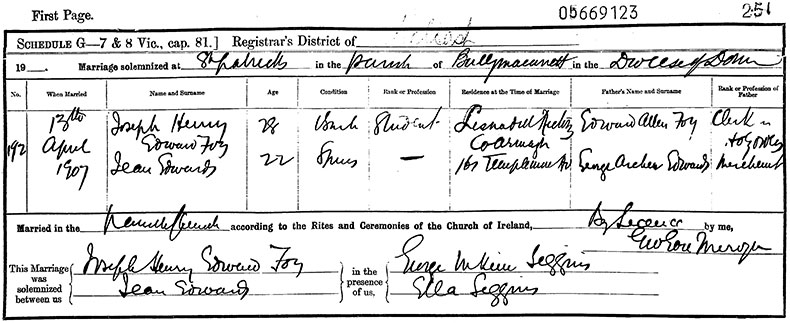 First Page. 05669123 251
SCHEDULE G—7 & 8 Vic., cap. 81.] Registrar's District of
19 . Marriage solemnized at St Patricks in the Parish of Ballymacarrett in the Diocese of Down
No. When Married Name and Surname Age Condition Rank or Profession Residence at the Time of Marriage Father's Name and Surname Rank or Profession of Father
192 13th April 1907
Joseph Henry Edward Foy 28 Bach Student Rectory Co Armagh Edward Allen Foy Clerk in Holy Orders
Jean Edwards 22 Spins — 167 Templemore Av George Archer Edwards Merchant
Married in the Parish Church according to the Rites and Ceremonies of the Church of Ireland, By Licence by me,
This Marriage was solemnized between us { Joseph Henry Edward Foy
Jean Edwards } in the presence of us, { George
Ella